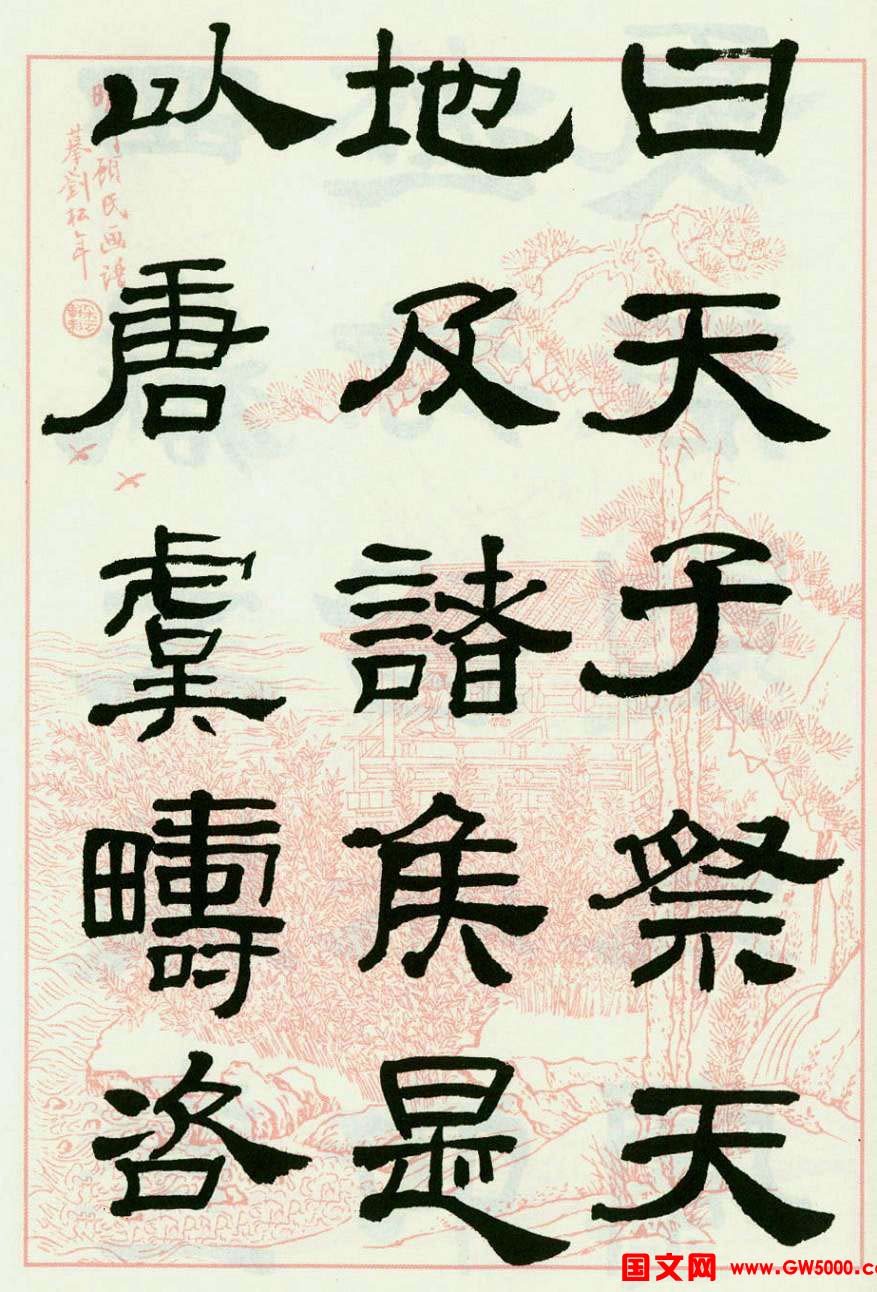 曰天子祭天
地及諸侯是
以唐虞疇咨
顧氏画譜
摹劉松年
国文网 www.GW5000.c